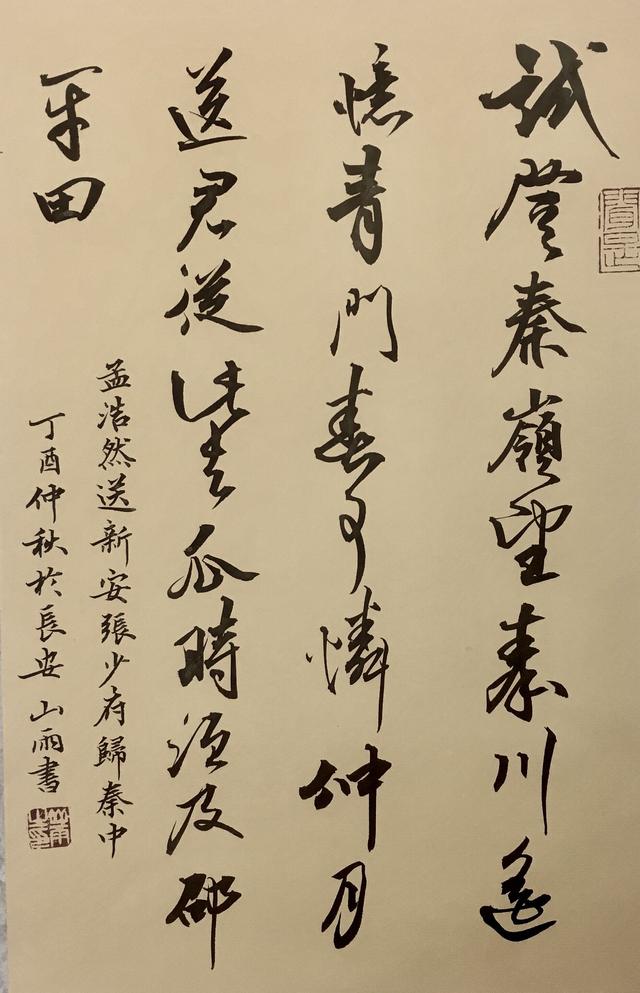 試登秦嶺望秦川遙
憶青門春可憐仲月
送君從此去瓜時須及邵
平田
孟浩然送新安張少府歸秦中
丁酉仲秋於長安山雨書